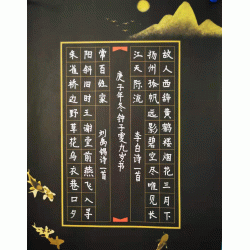 故人西辞黄鹤楼烟花三月下
扬州孤帆远影碧空尽惟见长
江天际流
李白诗一首
朱雀桥边野草花乌衣巷口夕
阳斜旧时王谢堂前燕飞入寻
常百姓家
刘禹锡诗一首
庚子年冬钟子雯九岁书